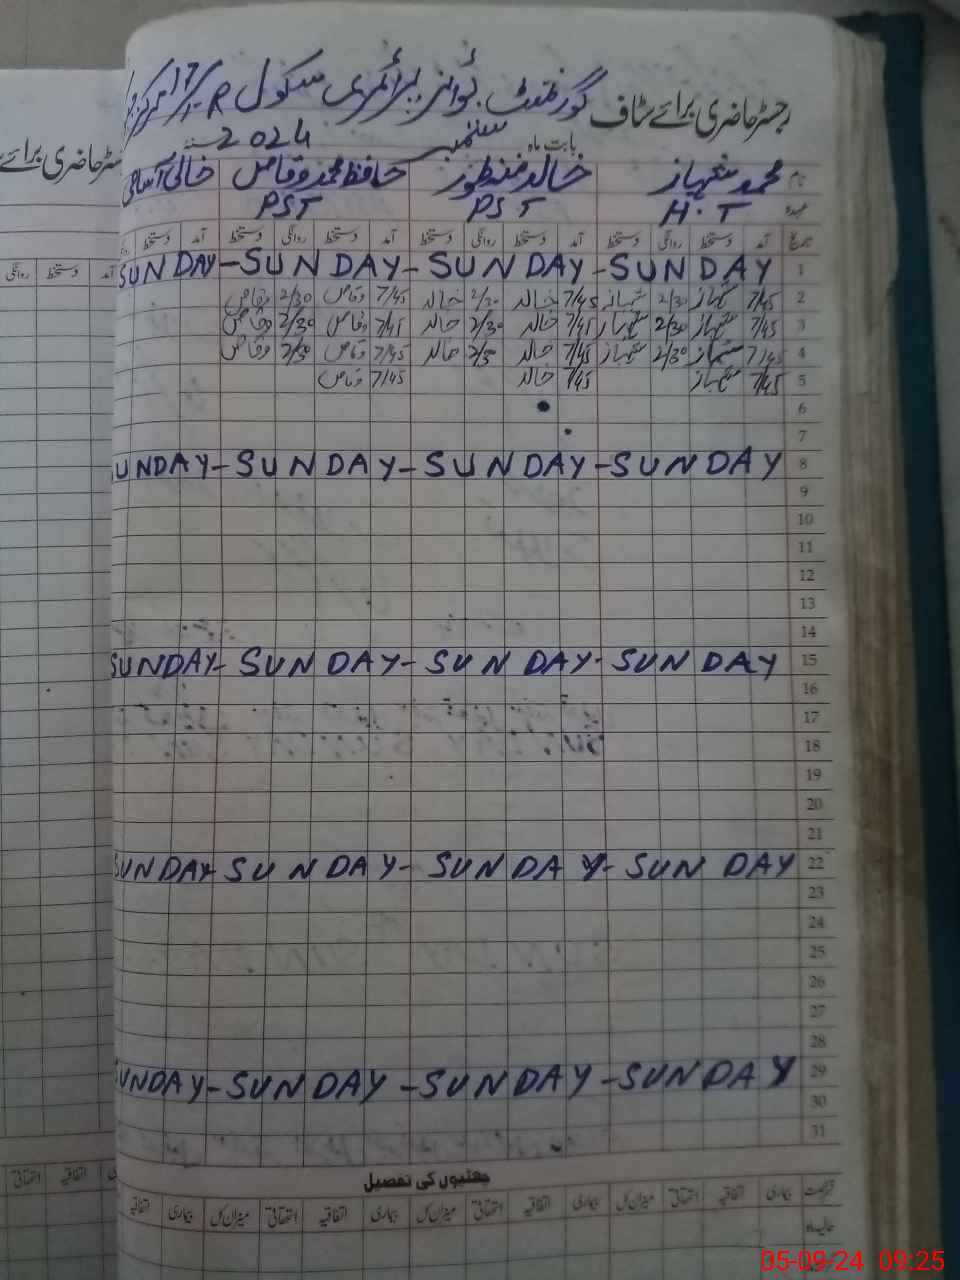 رجسٹر حاضری برائے سٹاف گورنمنٹ بوائز پرائمری سکول 17/1-R
بابت ماہ ستمبر سنہ 2024
نام محمد شہباز خالد منظور حافظ محمد وقاص خالی آسامی
عہدہ H.T PST PST
تاریخ آمد دستخط روانگی دستخط آمد دستخط روانگی دستخط آمد دستخط روانگی دستخط آمد دستخط
1 SUNDAY - SUNDAY - SUNDAY - SUNDAY
2 7/45 شہباز 2/30 شہباز 7/45 خالد 2/30 خالد 7/45 وقاص 2/30 وقاص
3 7/45 شہباز 2/30 شہباز 7/45 خالد 2/30 خالد 7/45 وقاص 2/30 وقاص
4 7/45 شہباز 2/30 شہباز 7/45 خالد 2/30 خالد 7/45 وقاص 2/30 وقاص
5 7/45 شہباز 7/45 خالد 7/45 وقاص
6
7
8 UNDAY - SUNDAY - SUNDAY - SUNDAY
9
10
11
12
13
14
15 SUNDAY - SUNDAY - SUNDAY - SUNDAY
16
17
18
19
20
21
22 SUNDAY - SUNDAY - SUNDAY - SUNDAY
23
24
25
26
27
28
29 SUNDAY - SUNDAY - SUNDAY - SUNDAY
30
31
چھٹیوں کی تفصیل
بیماری اتفاقیہ استحقاقی میزان کل بیماری اتفاقیہ استحقاقی میزان کل بیماری اتفاقیہ استحقاقی میزان کل بیماری اتفاقیہ
حالیہ ماہ
سٹر حاضری برائے
آمد دستخط روانگی
اتفاقیہ استحقاقی
05-09-24 09:25